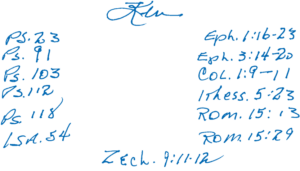 Ken
Ps. 23 Eph. 1:16-23
Ps. 91 Eph. 3:14-20
Ps. 103 Col. 1:9-11
Ps. 112 1 Thess. 5:23
Ps. 118 Rom. 15:13
ISA. 54 Rom. 15:29
Zech. 9:11-12